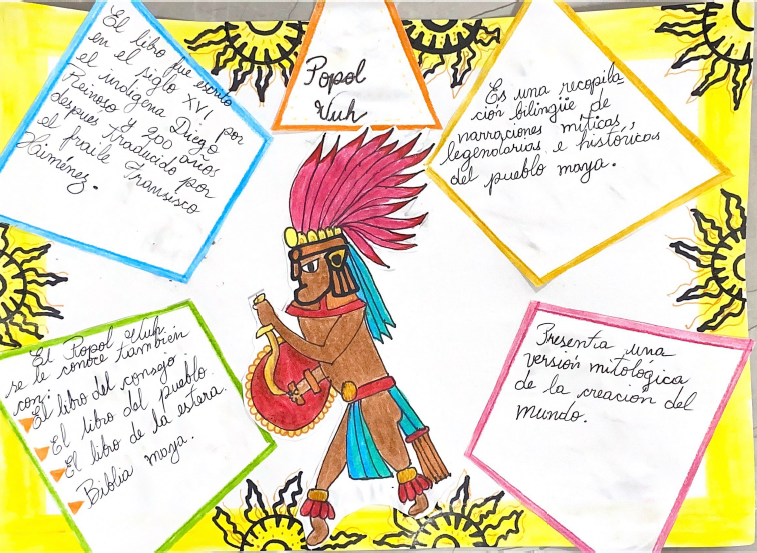 Popol
Vuh
El libro fue escrito
en el siglo XVI por
el indígena Diego
Reinoso y 200 años
despues traducido por
el fraile Fransisco
Ximénez.
Es una recopila-
ción bilingüe de
narraciones míticas,
legendarias e históricas
del pueblo maya.
El Popol Vuh
se le conoce también
con:
El libro del consejo
El libro del pueblo.
El libro de la estera.
Biblia maya.
Presenta una
versión mitológica
de la creación del
mundo.